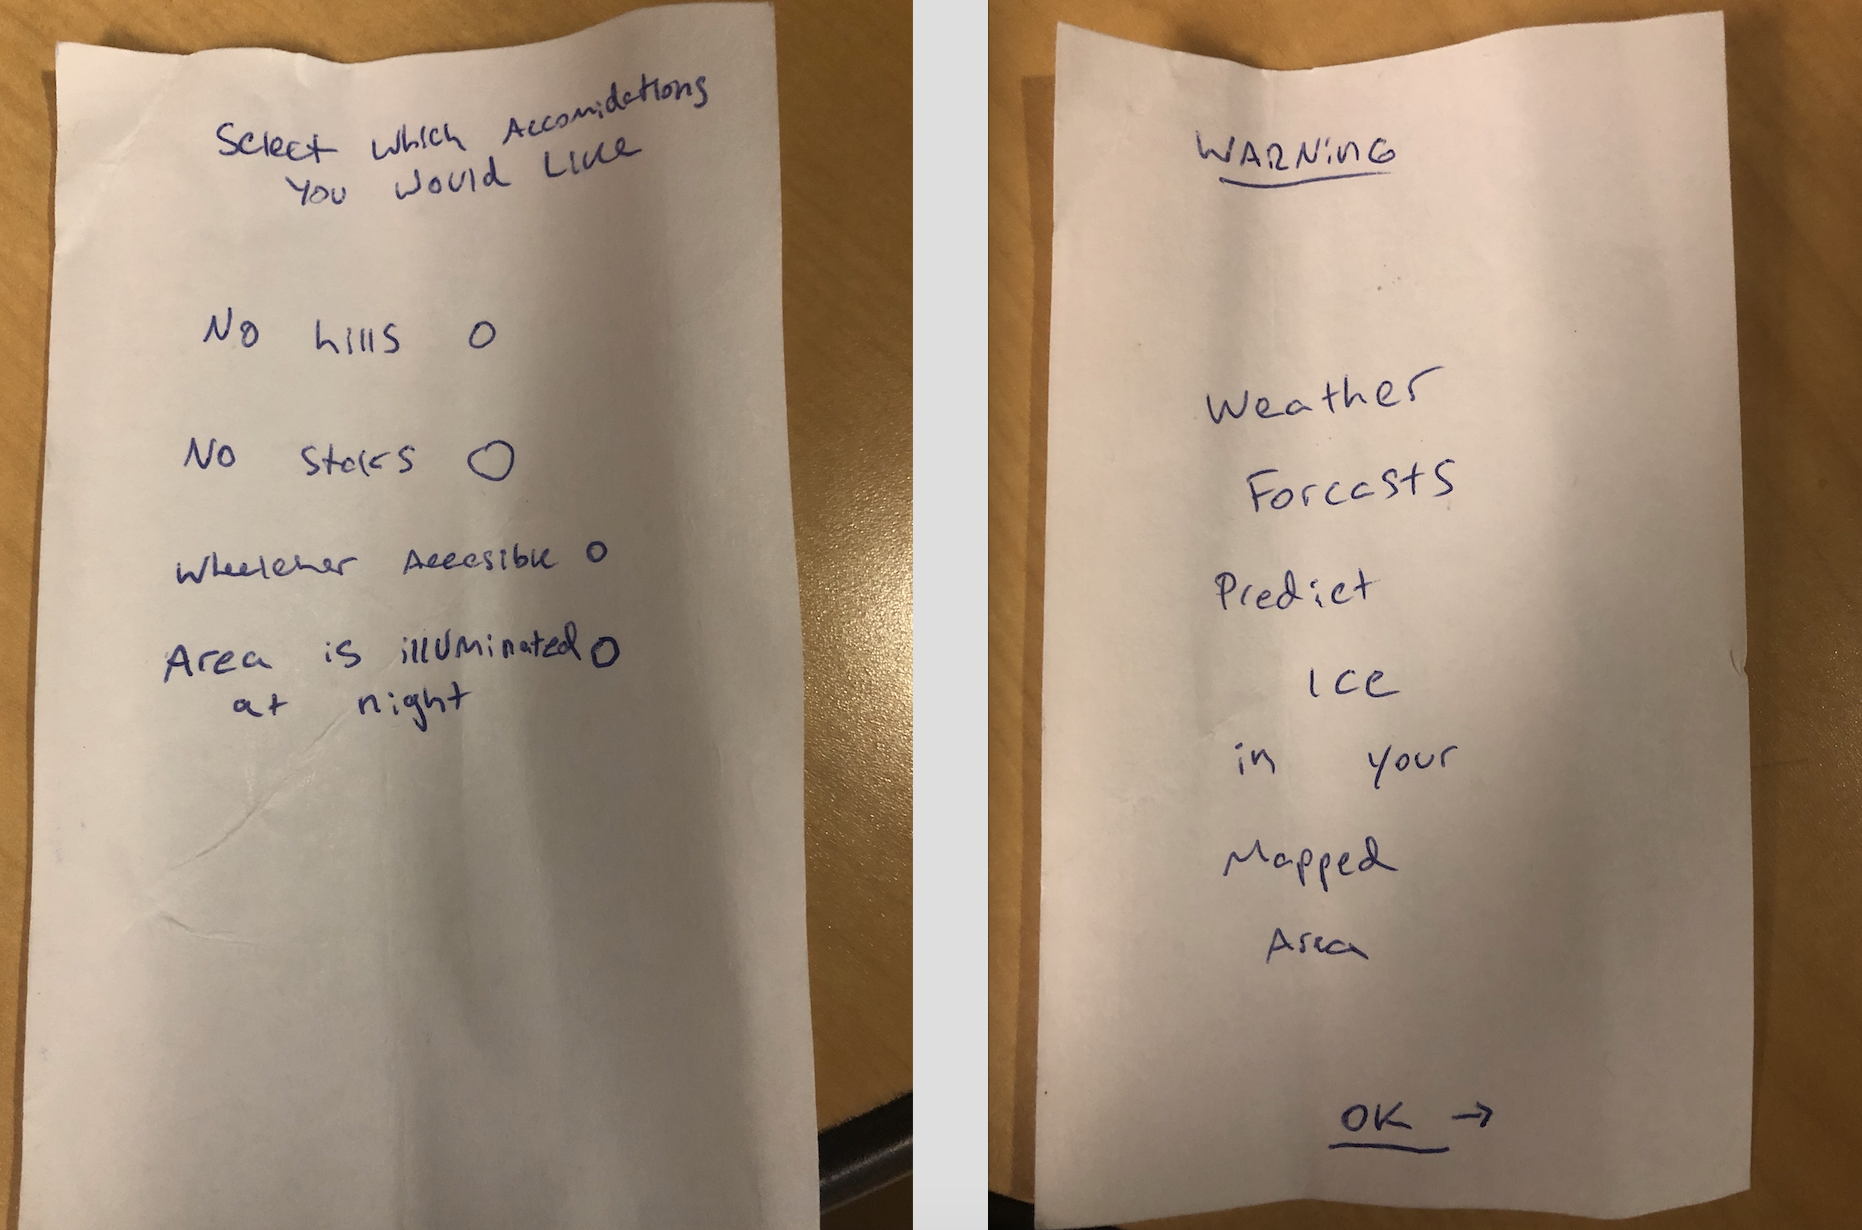 Select Which Accomidations
You Would Like
No hills
No stairs
Accesible
Area is illuminated
at night
WARNiNG
Weather
Forcasts
Predict
ICE
in your
Mapped
Area
OK →